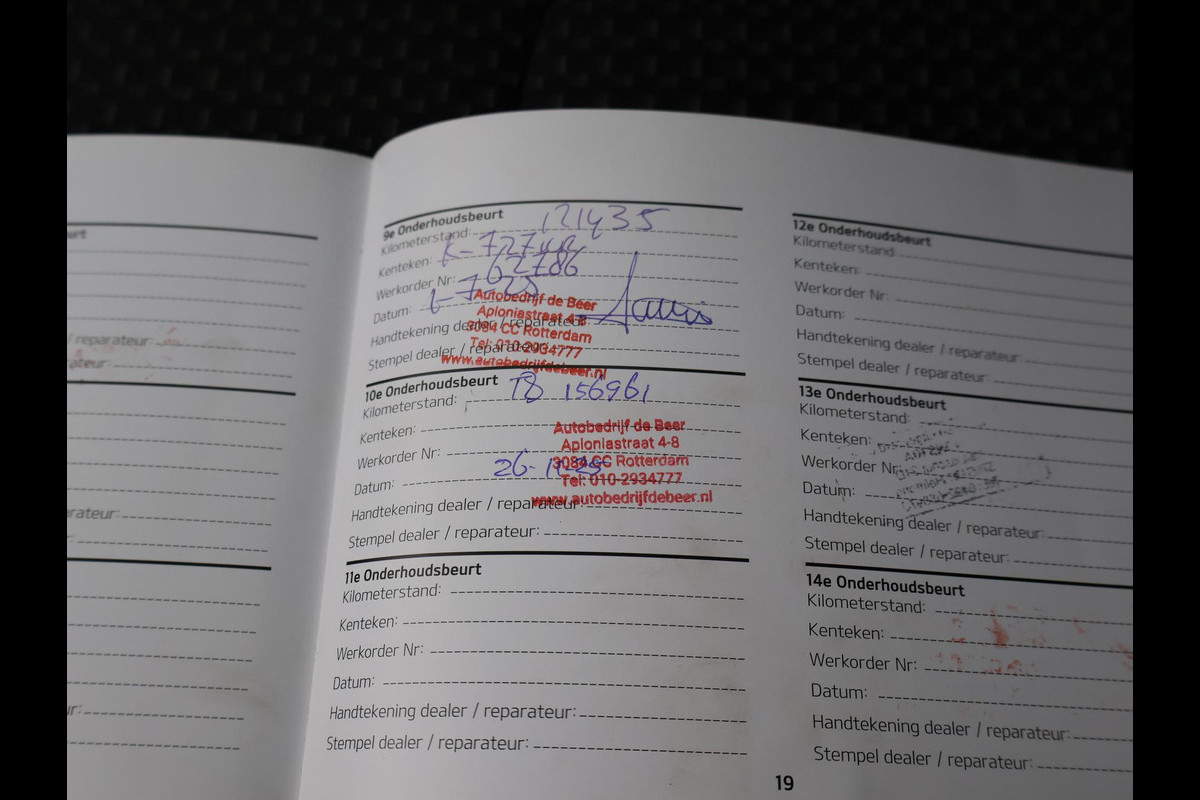 eurt
/ reparateur:
ateur:
arateur:
r:
ur:
9e Onderhoudsbeurt
Kilometerstand: 121435
Kenteken:
Werkorder Nr: 62786
Datum:
Handtekening dealer / reparateur:
Stempel dealer / reparateur:
Autobedrijf de Beer
Aploniastraat 4-8
3084 CC Rotterdam
Tel: 010-2934777
www.autobedrijfdebeer.nl
10e Onderhoudsbeurt
Kilometerstand: 156961
Kenteken:
Werkorder Nr:
Datum:
Handtekening dealer / reparateur:
Stempel dealer / reparateur:
Autobedrijf de Beer
Aploniastraat 4-8
3084 CC Rotterdam
Tel: 010-2934777
www.autobedrijfdebeer.nl
11e Onderhoudsbeurt
Kilometerstand:
Kenteken:
Werkorder Nr:
Datum:
Handtekening dealer / reparateur:
Stempel dealer / reparateur:
12e Onderhoudsbeurt
Kilometerstand:
Kenteken:
Werkorder Nr:
Datum:
Handtekening dealer / reparateur:
Stempel dealer / reparateur:
13e Onderhoudsbeurt
Kilometerstand:
Kenteken:
Werkorder Nr:
Datum:
Handtekening dealer / reparateur:
Stempel dealer / reparateur:
14e Onderhoudsbeurt
Kilometerstand:
Kenteken:
Werkorder Nr:
Datum:
Handtekening dealer / reparateur:
Stempel dealer / reparateur:
19